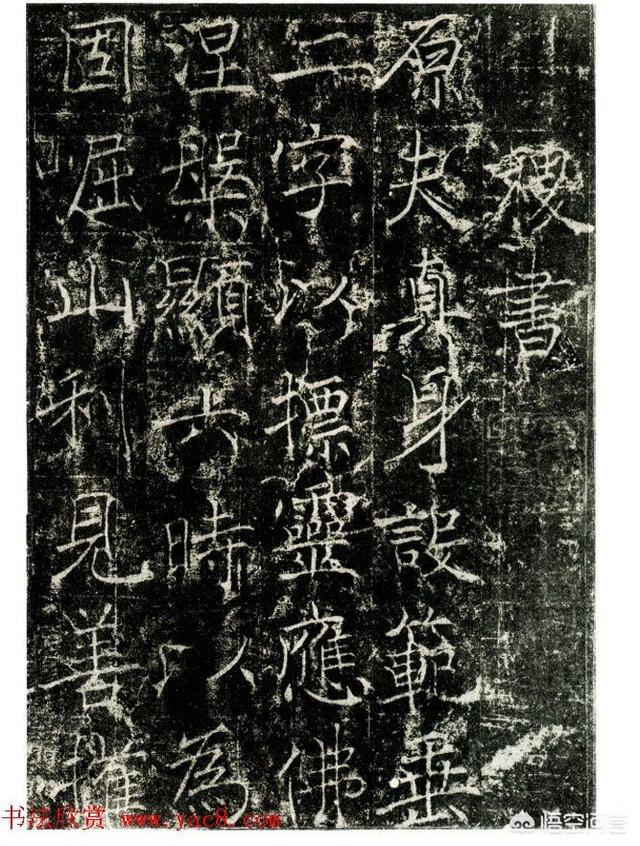 稷書
原夫真身設範垂
二字以摽靈應佛
涅槃顯六時以為
固崛山利見善權
书法欣赏 www.yac8.com
悟空问答